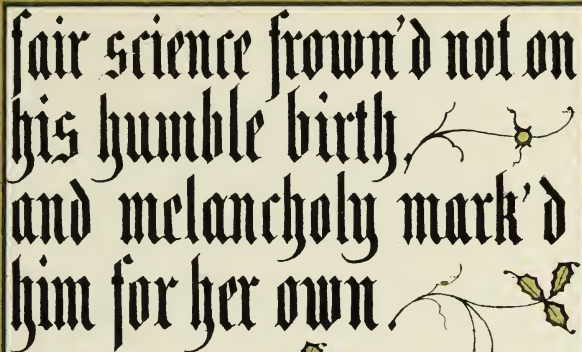 fair science frown'd not on
his humble birth,
and melancholy mark'd
him for her own.